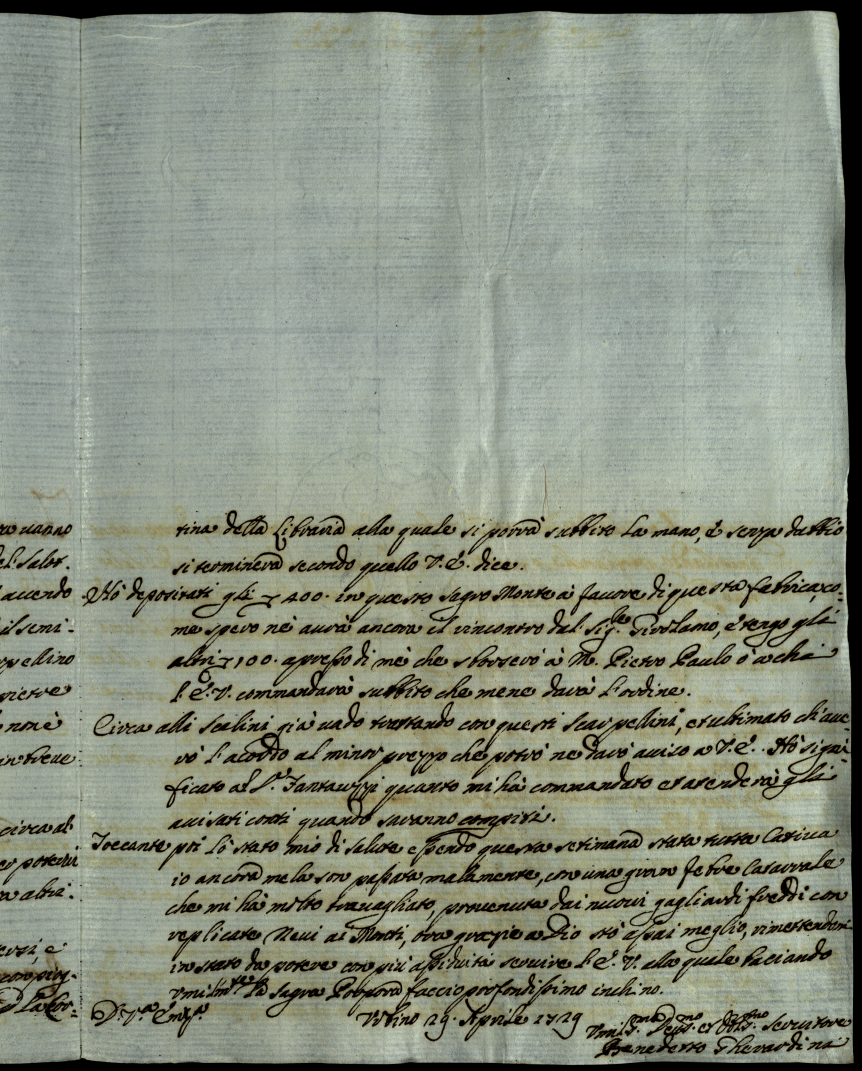 ra uanno
el Salet.
auendo
il semi-
pellino
pietre
non è
in breue
circa al
potersi
ra altri.
ersi, e
con piog-
La Cor-
tina della Libraria alla quale si porrà subbito la mano, è senza dubbio
si terminerà secondo quello V. E. dice.
Hò depositati gli 400. in questo Sagro Monte à fauore di questa fabrica, co-
me spero nè aurà ancora il rincontro dal Sig.re Girolamo, è tengo gli
altri 100. apresso di mè che sborserò à M. Pietro Paulo ò à chi
l'E. V. commandarà subbito che mene darà l'ordine.
Circa alli scalini già uado trattando con questi Scarpellini, et ultimato ch'aue-
rò l'acordo al minor prezzo che potrò ne darò auiso a V. E. Hò signi-
ficato al S.r Fantauzzi quanto mi hà commandato et atenderà gli
auisati conti quando saranno compiti.
Toccante poi lo stato mio di salute essendo questa setimana stata tutta Catiua
io ancora me la son passata malamente, con una gran febre Catarrale
che mi hà molto trauagliato, prouenuta dai nuoui gagliardi freddi con
replicate Neui ai Monti, ora grazie a Dio stò assai meglio, rimettendomi
in stato da potere con più assiduità seruire l'E. V. alla quale baciando
vmilm.te la Sagra Porpora faccio profondissimo inchino.
D. V.ra Em.za
Vrbino 29. Aprile 1729
Vmil.mo Deu.mo et Obb.mo Seruitore
Benedetto Gherardina